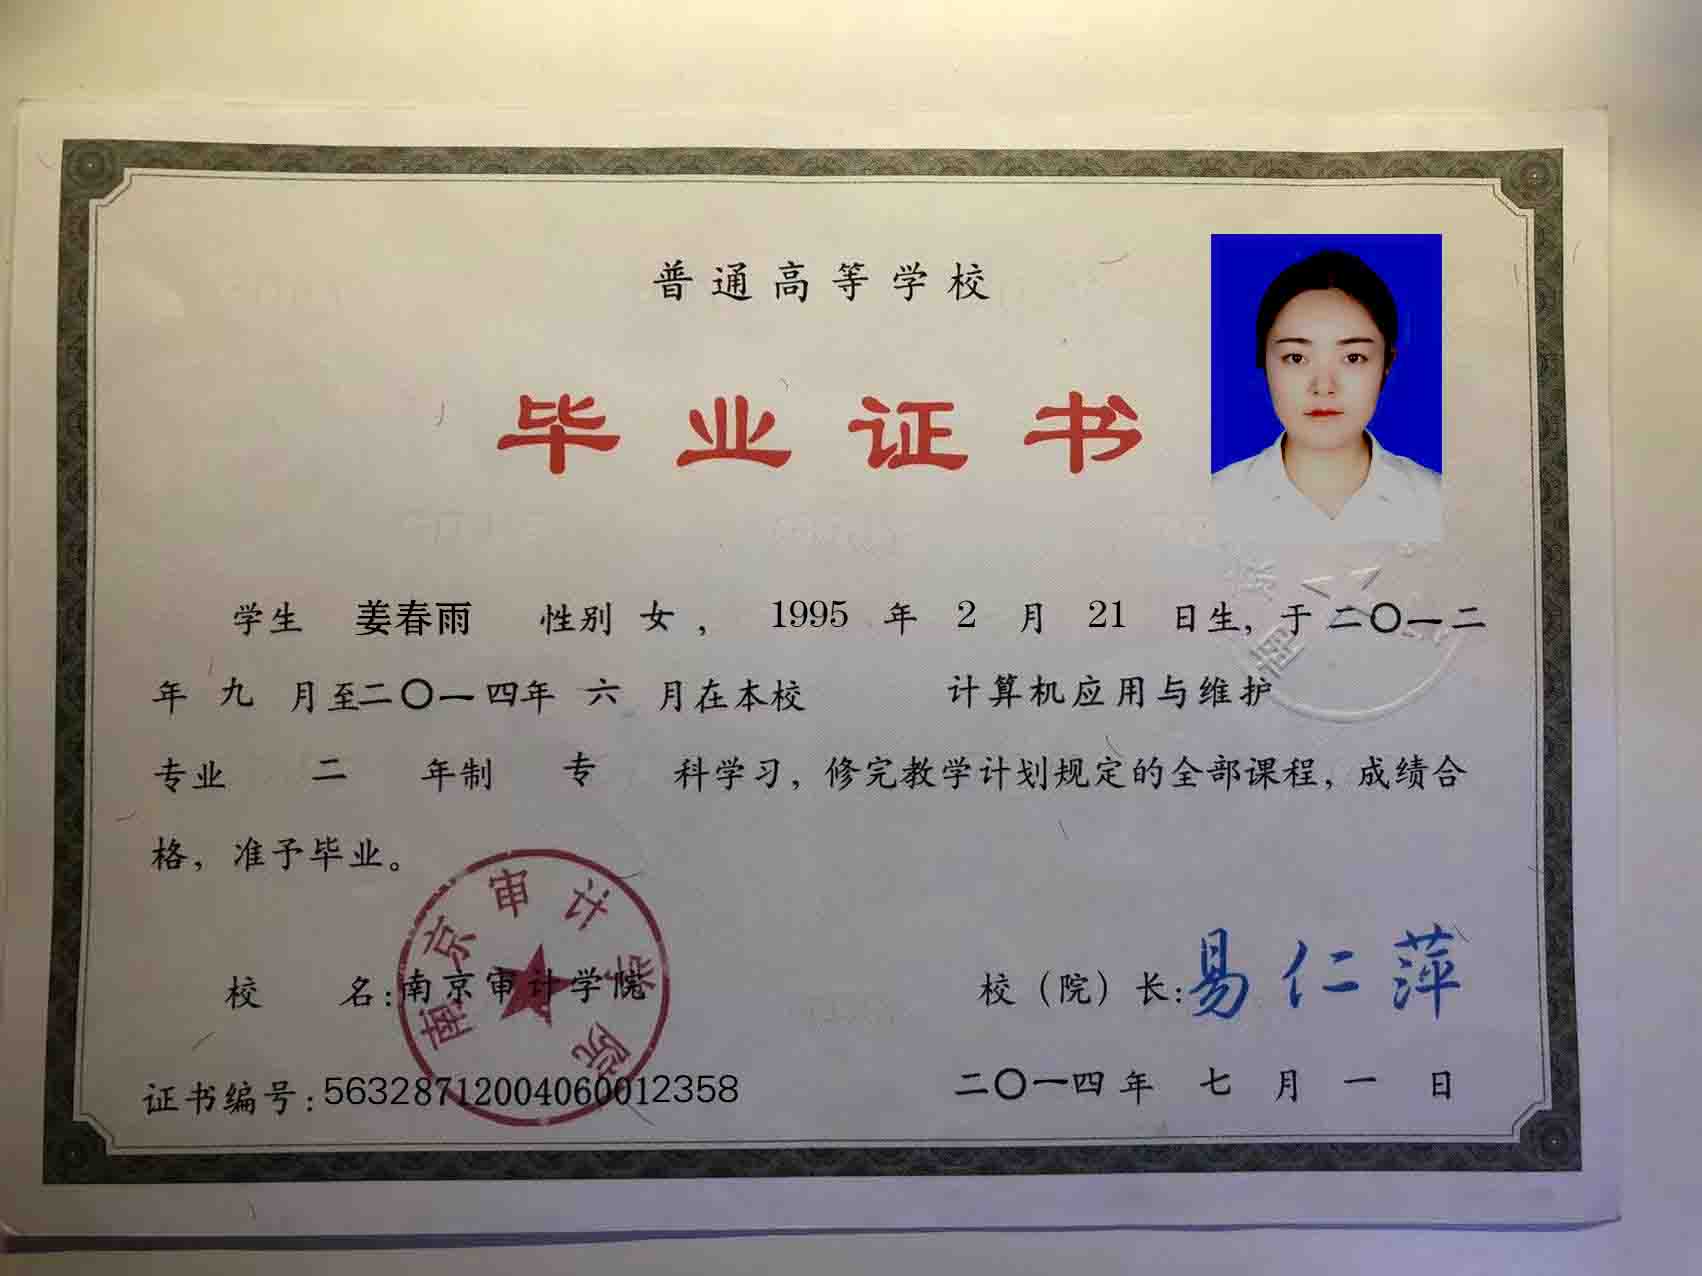 普通高等学校
毕业证书
学生 姜春雨 性别 女， 1995 年 2 月 21 日生，于 二〇一二
年 九 月至二〇一四年 六 月在本校 计算机应用与维护
专业 二 年制 专 科学习，修完教学计划规定的全部课程，成绩合
格，准予毕业。
南京审计学院
校 名：南京审计学院
校（院）长：易仁萍
证书编号：56328712004060012358
二〇一四年 七 月 一 日